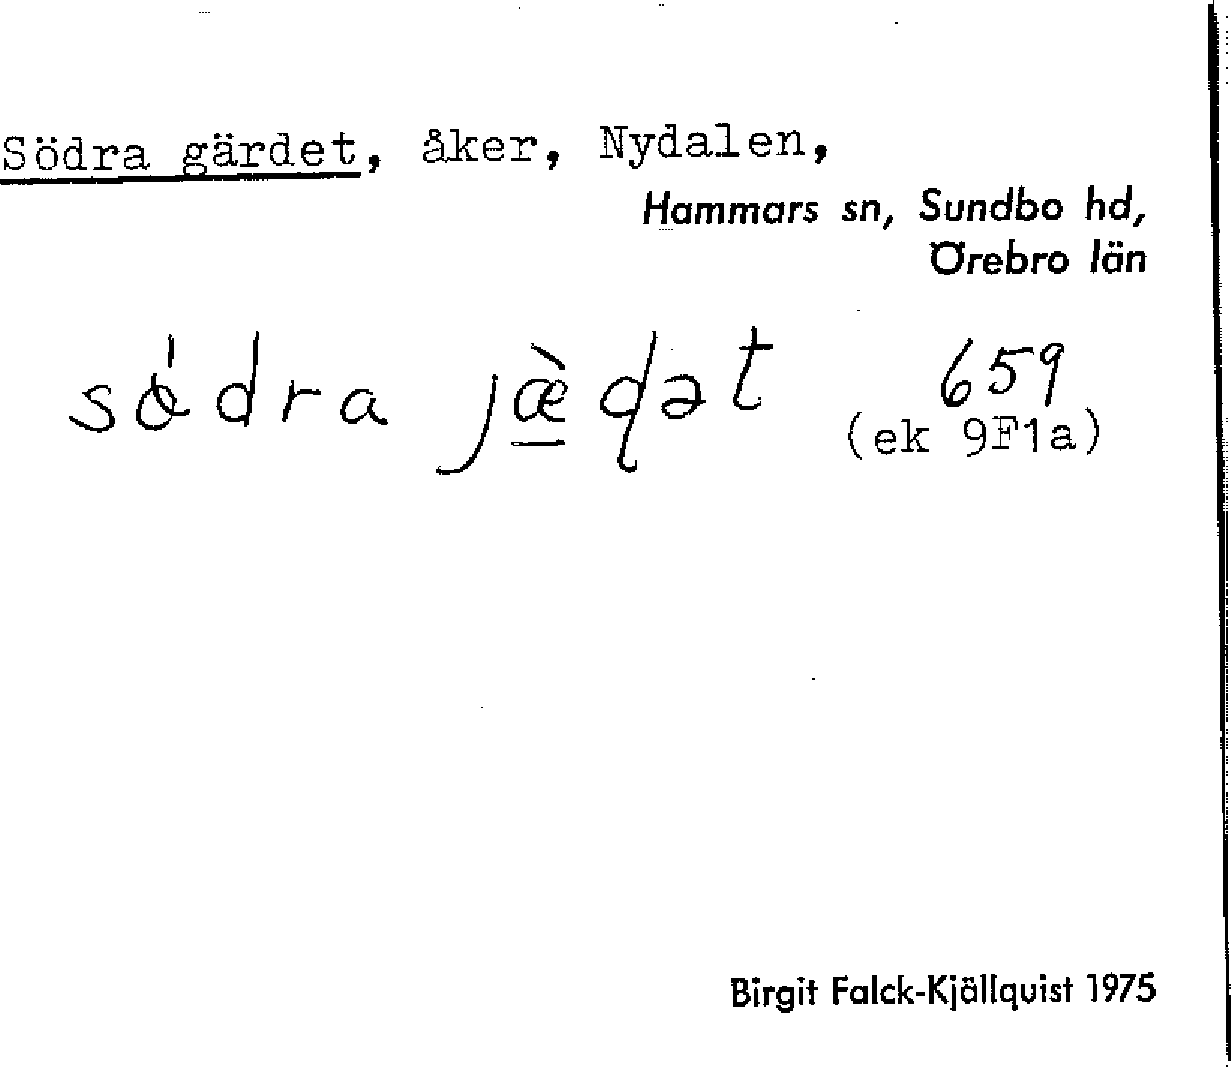 Södra gärdet, åker, Nydalen,
Hammars sn, Sundbo hd,
Örebro län
södra jæ̀ɖət 659
(ek 9F1a)
Birgit Falck-Kjällquist 1975